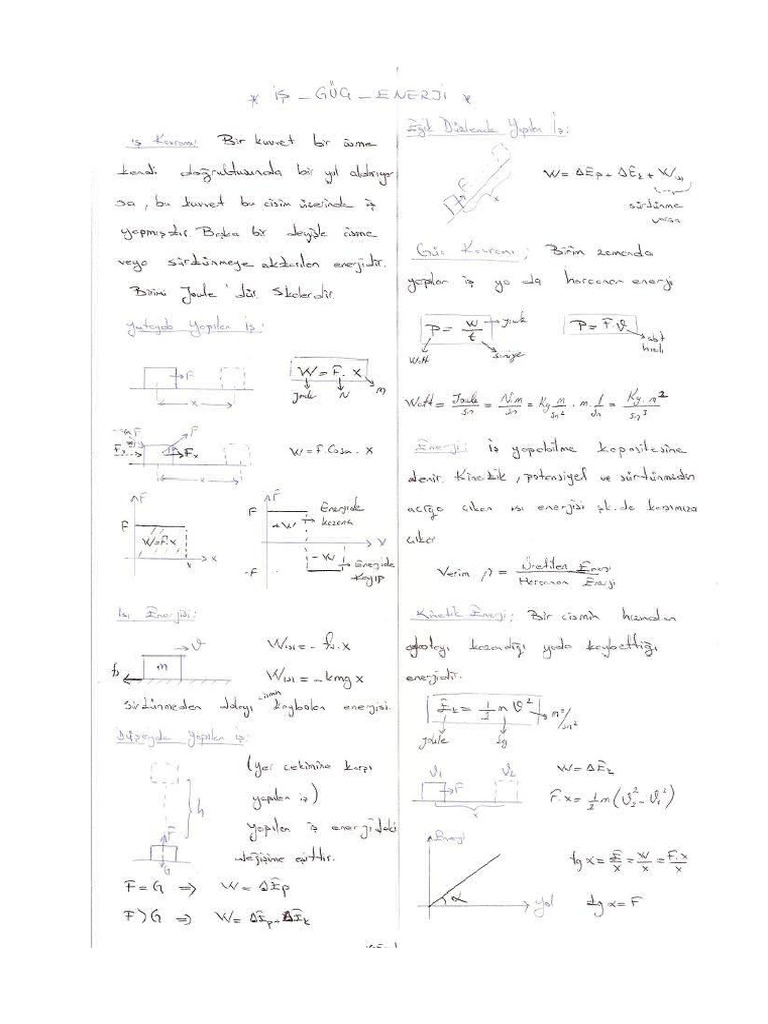 * İŞ - GÜÇ - ENERJİ *
İş Kavramı: Bir kuvvet bir cisme
kendi doğrultusunda bir yol aldırıyor
sa, bu kuvvet bu cisim üzerinde iş
yapmıştır. Başka bir deyişle cisme
veya sürtünmeye aktarılan enerjidir.
Birimi Joule'dür. Skalerdir.
Yatayda Yapılan İş:
F
x
W = F . x
Joule N m
F
Fx
x
W = F. Cosα . x
F
F
W=F.x
x
x
F
F
+W
Enerjide
kazanç
x
-W
-F
Enerjide
kayıp
Isı Enerjisi:
m
fs
W(ısı) = - fs . x
W(ısı) = - kmg x
Sürtünmeden dolayı cismin kaybolan enerjisi.
Düşeyde Yapılan iş:
h
F
G
(Yer çekimine karşı
yapılan iş)
yapılan iş enerjideki
değişime eşittir.
F = G ⇒ W = ΔEp
F > G ⇒ W = ΔEp + ΔEk
Eğik Düzlemde Yapılan İş:
F
x
W = ΔEp + ΔEk + W(ısı)
sürtünme
varsa
Güç Kavramı; Birim zamanda
yapılan iş ya da harcanan enerji
P = W/t
Joule
Watt
saniye
P = F.ϑ
sbt
hızlı
Watt = Joule/sn = N.m/sn = Kg m/sn² . m . 1/sn = Kg. m²/sn³
Enerji: iş yapabilme kapasitesine
denir. Kinetik, potansiyel ve sürtünmeden
açığa çıkan ısı enerjisi şk.de karşımıza
çıkar
Verim = Üretilen Enerji / Harcanan Enerji
Kinetik Enerji; Bir cismin hızından
dolayı kazandığı yada kaybettiği
enerjidir.
Ek = 1/2 m ϑ²
Joule kg m²/sn²
ϑ1 ϑ2
F
x
W = ΔEk
F.x = 1/2 m (ϑ2² - ϑ1²)
Enerji
α
yol
tg α = E/x = W/x = F.x/x
tg α = F